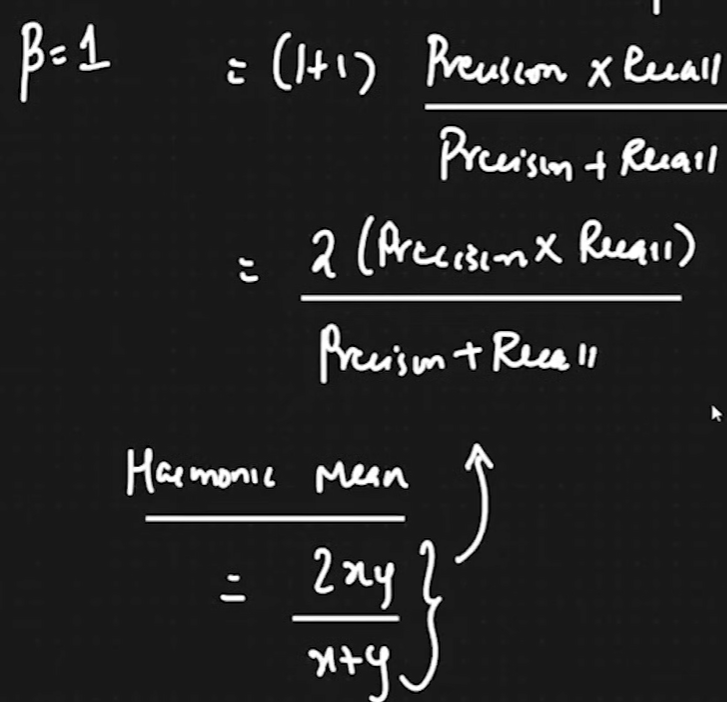 β=1 = (1+1) Precision × Recall
Precision + Recall
= 2 (Precision × Recall)
Precision + Recall
Harmonic Mean
= 2xy
x+y